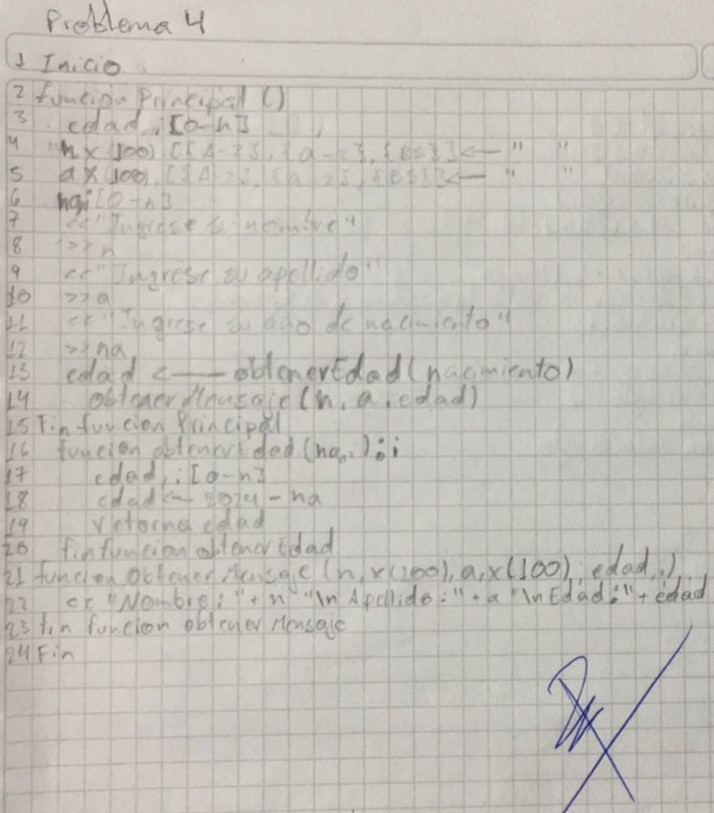 Problema 4
1 Inicio
2 funcion Principal ()
3 edad i [0-n]
4 nx(100) [{A-z}, {a-z}, {ES}] <— " "
5 ax(100) [{A-z}, {a-z}, {ES}] <— " "
6 nai [0-n]
7 << "Ingrese su nombre"
8 >> n
9 << "Ingrese su apellido"
10 >> a
11 << "Ingrese su año de nacimiento"
12 >> na
13 edad <— obtenerEdad (nacimiento)
14 obtenerMensaje (n, a, edad)
15 Fin funcion Principal
16 funcion obtenerEdad (na, i) : i
17 edad i : [0-n]
18 edad <— 2024 - na
19 retorna edad
20 fin funcion obtenerEdad
21 funcion obtenerMensaje (n, x(100), a, x(100), edad, i)
22 << "Nombre: " + n "\n Apellido: " + a "\n Edad: " + edad
23 fin funcion obtener Mensaje
24 Fin